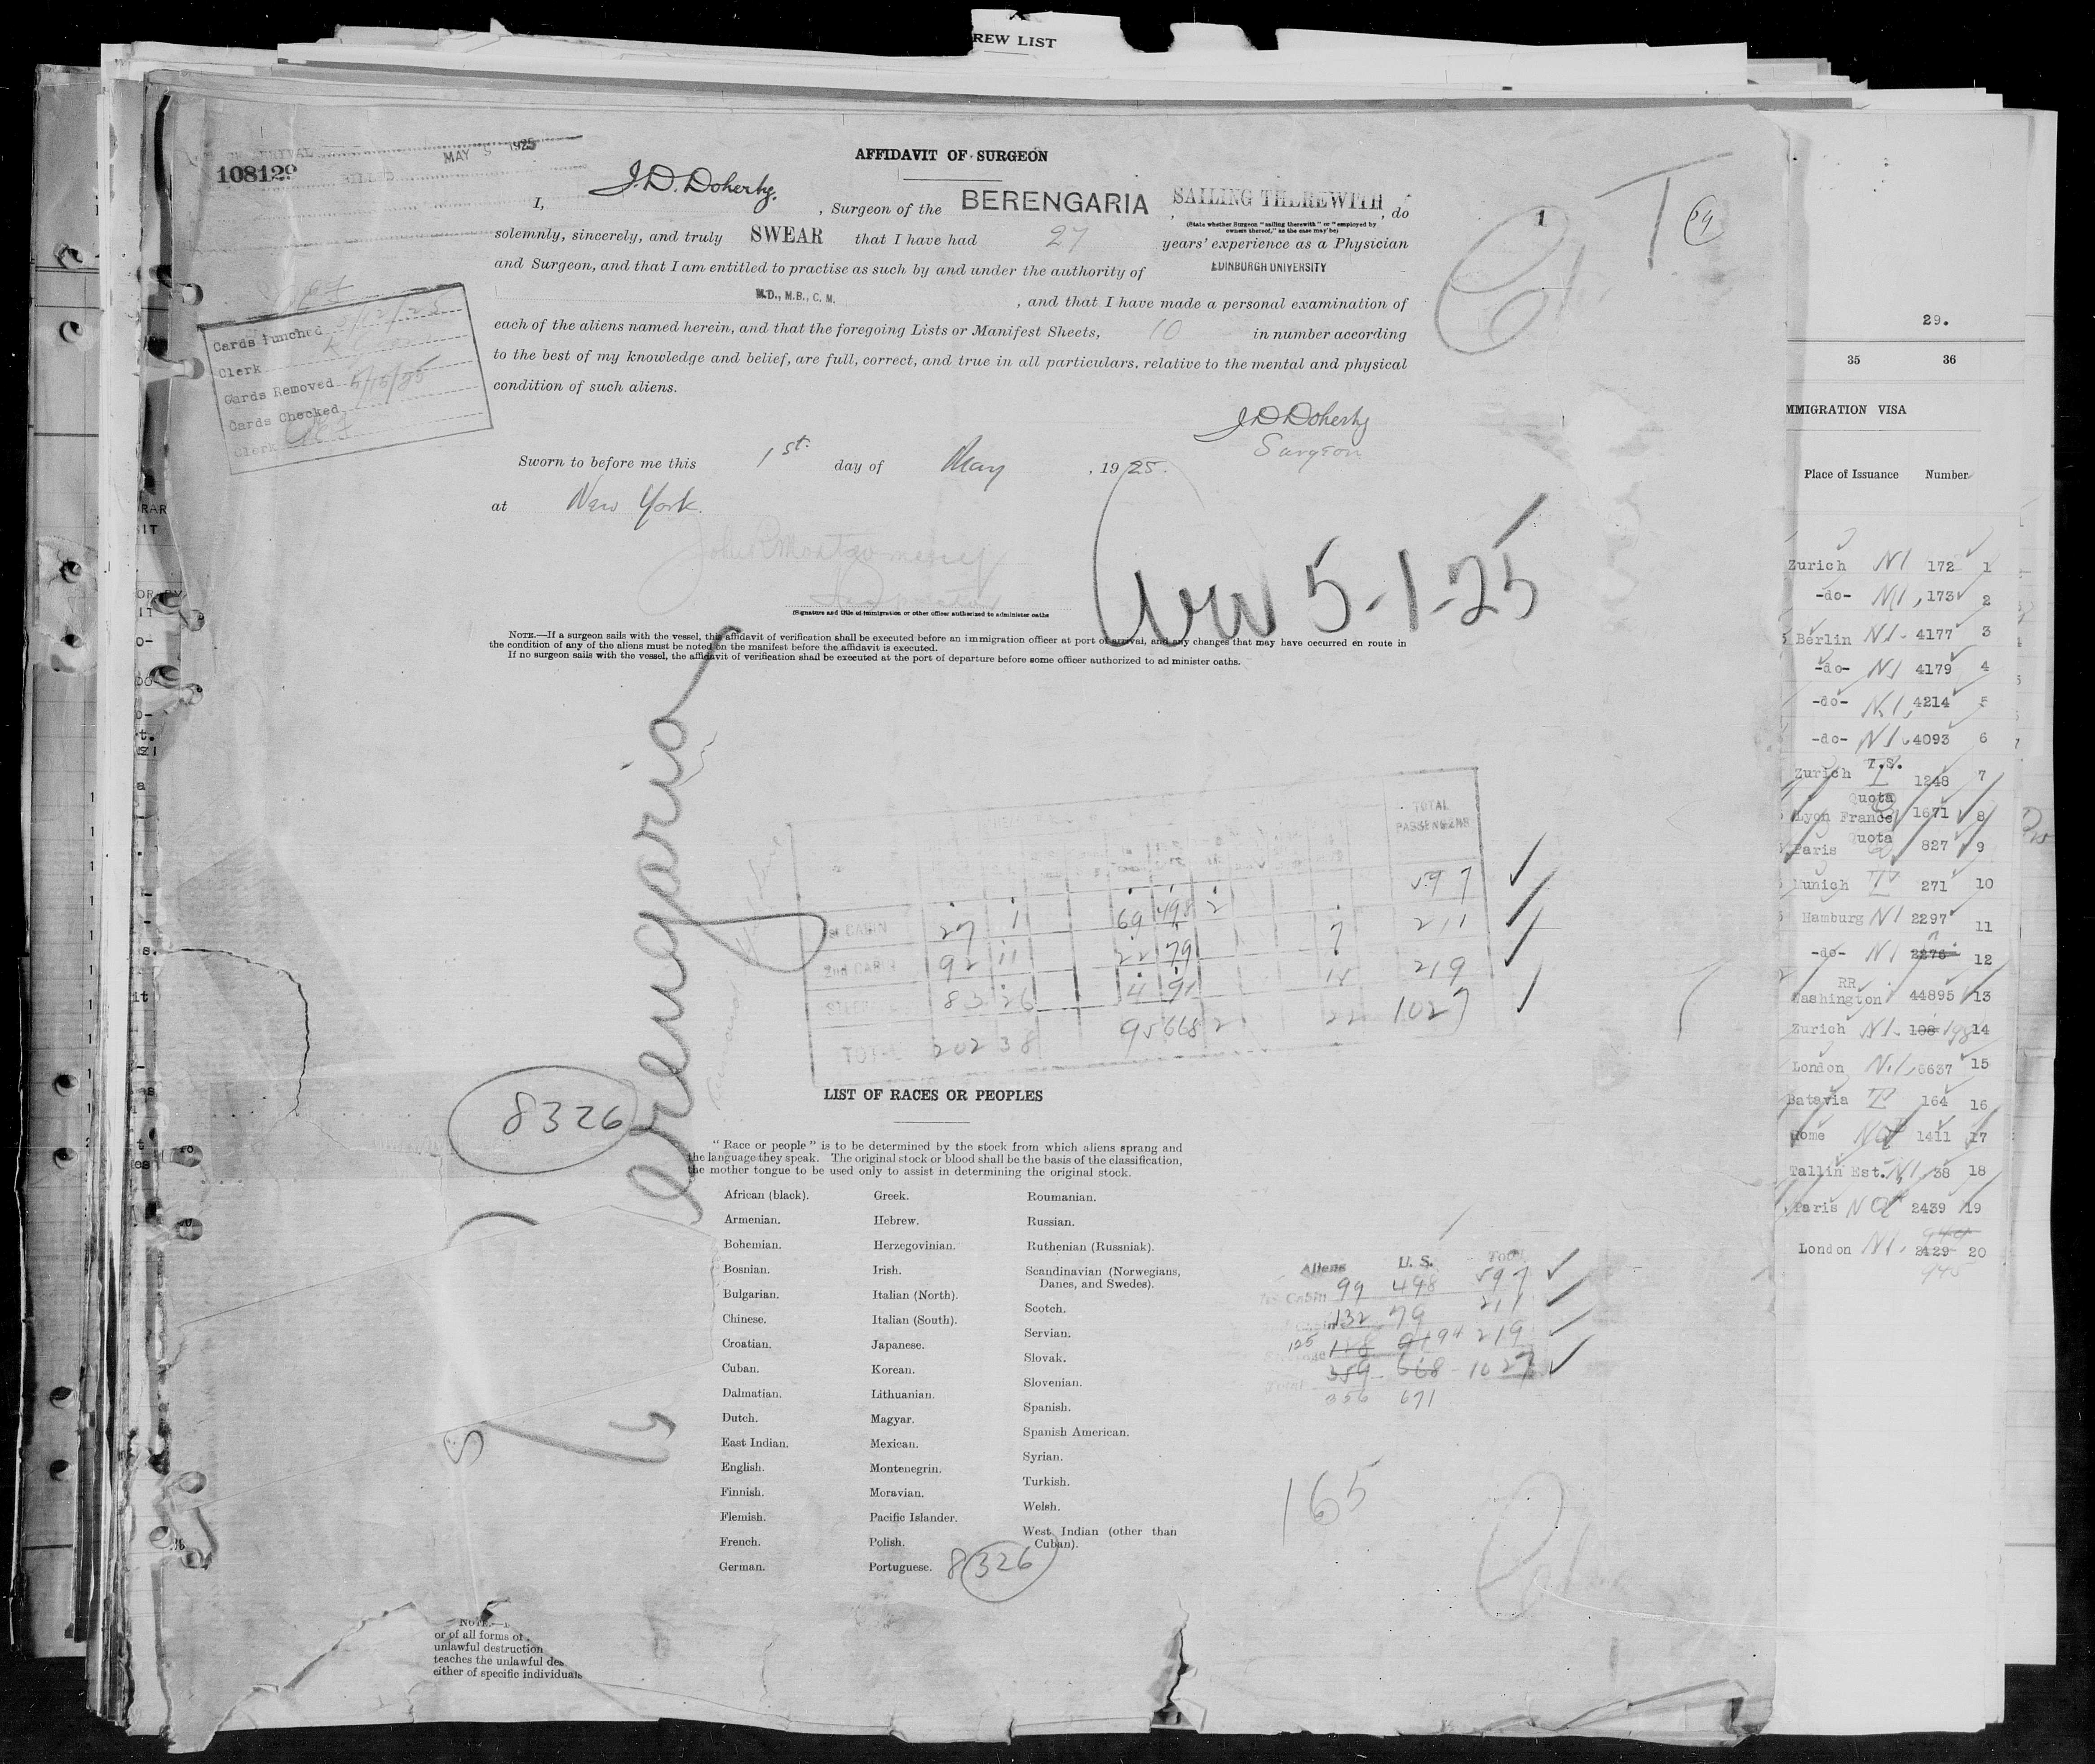 REW LIST
MAY 5 1925
108129
AFFIDAVIT OF SURGEON
I, J. D. Doherty, Surgeon of the BERENGARIA SAILING THEREWITH, do
(State whether Surgeon "sailing therewith" or "employed by
owners thereof," as the case may be)
solemnly, sincerely, and truly SWEAR that I have had 27 years' experience as a Physician
and Surgeon, and that I am entitled to practise as such by and under the authority of EDINBURGH UNIVERSITY
M.D., M.B., C. M. , and that I have made a personal examination of
each of the aliens named herein, and that the foregoing Lists or Manifest Sheets, 10 in number according
to the best of my knowledge and belief, are full, correct, and true in all particulars. relative to the mental and physical
condition of such aliens.
J D Doherty
Surgeon
Sworn to before me this 1st. day of May , 1925.
at New York.
John R Montgomery
(Signature and title of immigration or other officer authorized to administer oaths
Cards Punched
Clerk
Cards Removed 5/15/25
Cards Checked
Clerk
1
5-1-25
NOTE.—If a surgeon sails with the vessel, this affidavit of verification shall be executed before an immigration officer at port of arrival, and any changes that may have occurred en route in
the condition of any of the aliens must be noted on the manifest before the affidavit is executed.
If no surgeon sails with the vessel, the affidavit of verification shall be executed at the port of departure before some officer authorized to ad minister oaths.
Berengaria
TOTAL
PASSENGERS
1st CABIN 27 1 69 498 2 597
2nd CABIN 92 11 22 79 7 211
83 26 4 91 15 219
TOTAL 202 38 95 668 2 22 1027
8326
LIST OF RACES OR PEOPLES
"Race or people" is to be determined by the stock from which aliens sprang and
the language they speak. The original stock or blood shall be the basis of the classification,
the mother tongue to be used only to assist in determining the original stock.
African (black).
Armenian.
Bohemian.
Bosnian.
Bulgarian.
Chinese.
Croatian.
Cuban.
Dalmatian.
Dutch.
East Indian.
English.
Finnish.
Flemish.
French.
German.
Greek.
Hebrew.
Herzegovinian.
Irish.
Italian (North).
Italian (South).
Japanese.
Korean.
Lithuanian.
Magyar.
Mexican.
Montenegrin.
Moravian.
Pacific Islander.
Polish.
Portuguese.
Roumanian.
Russian.
Ruthenian (Russniak).
Scandinavian (Norwegians,
Danes, and Swedes).
Scotch.
Servian.
Slovak.
Slovenian.
Spanish.
Spanish American.
Syrian.
Turkish.
Welsh.
West Indian (other than
Cuban).
8326
Aliens U. S. Total
1st Cabin 99 498 597
132 79 211
125 128 91 94 219
359 668 1027
356 671
165
NOTE.—
or of all forms of
unlawful destruction
teaches the unlawful des
either of specific individuals
29.
35 36
MMIGRATION VISA
Place of Issuance Number
Zurich NI 172 1
-do- NI 173 2
Berlin NI 4177 3
-do- NI 4179 4
-do- NI 4214 5
-do- NI 4093 6
Zurich T.S. 1248 7
Quota
Lyon France 1671 8
Quota
Paris 827 9
Munich T 271 10
Hamburg NI 2297 11
-do- NI 2276 12
RR
Washington 44895 13
Zurich NI 108 198 14
London NI 6637 15
Batavia T 164 16
Rome NQ 1411 17
Tallin Est. NI 38 18
Paris NQ 2439 19
London NI 2429 20